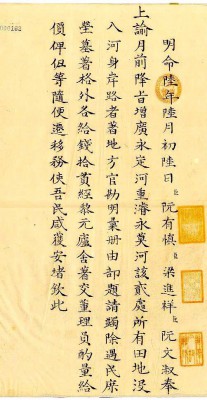 明命陸年陸月初陸日臣阮有慎臣梁進祥臣阮文淑奉
上諭月前降旨增廣永定河重濬永奠河該貳處所有田地沒
入河身岸路者著地方官勘明某冊由部題請蠲除遇民
塋墓著格外各給錢拾貫經黎元廬舍著交董理員酌量給
價俾伊等隨便遷移務使吾民咸獲安堵欽此